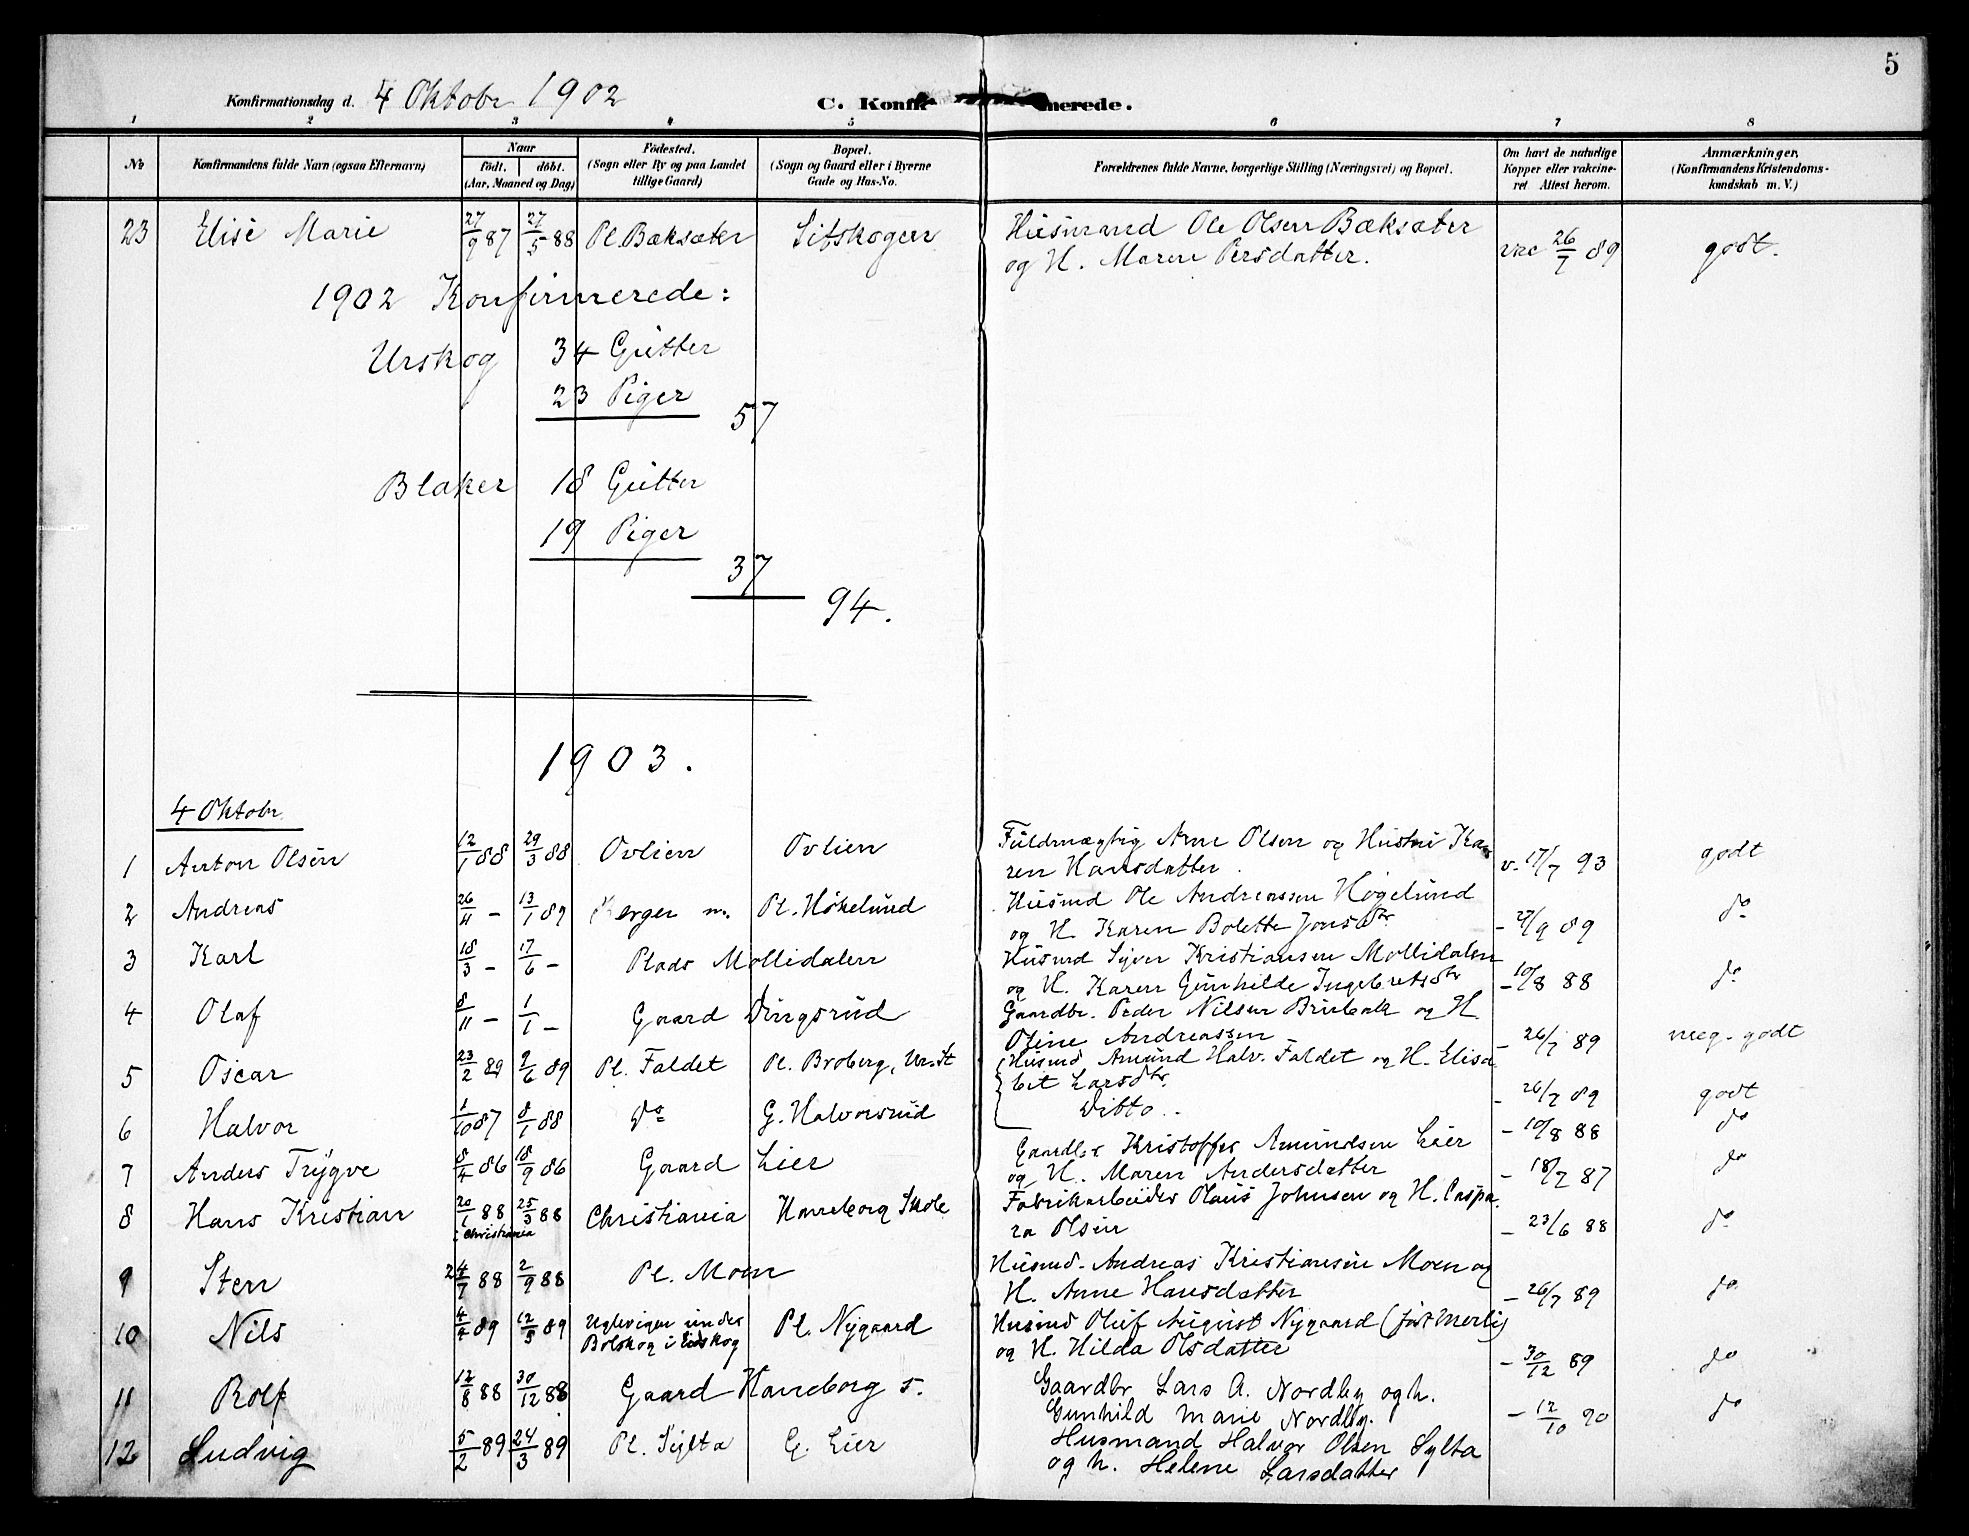 5
Konfirmationsdag d. 4 Oktobr 1902
C. Konfirmerede.
1 2 3 4 5 6 7 8
No
Konfirmandens fulde Navn (ogsaa Efternavn)
Naar
födt. döbt.
(Aar, Maaned og Dag)
Födested.
(Sogn eller By og paa Landet
tillige Gaard)
Bopæl.
(Sogn og Gaard eller i Byerne
Gade og Hus-No.
Forældrenes fulde Navne, borgerlige Stilling (Næringsvei) og Bopæl.
Om havt de naturlige
Kopper eller vakcine-
ret Attest herom.
Anmærkninger.
(Konfirmandens Kristendoms-
kundskab m. V.)
23 Elise Marie 27/9 87 27/5 88 Pl. Bæksæter Sitskogen Husmand Ole Olsen Bæksæter vac 26/7 89 godt.
og H. Maren Persdatter.
1902 Konfirmerede:
Urskog 34 Gutter
23 Piger
57
Blaker 18 Gutter
19 Piger
37
94.
1903.
4 Oktobr.
1 Anton Olsen 12/1 88 29/3 88 Ovlien Ovlien Fuldmægtig Arne Olsen og Hustru Ka-
ren Hansdatter. v. 17/7 93 godt
2 Andreas 26/11 - 13/1 89 Pl. Hökelund Husmd Ole Andreassen Högelund
og H. Karen Bolette Jonsdtr - 27/9 89 do
3 Karl 18/3 - 17/6 - Plads Mollidalen Husmd Syver Kristiansen Mollidalen
og H. Karen Gunhilde Ingebretsdtr - 10/8 88 do
4 Olaf 8/11 - 1/1 - Gaard Dingsrud Gaardbr. Peder Nilsen Brubak og H.
Oline Andreassen - 26/7 89 meg. godt
5 Oscar 23/2 89 9/6 89 Pl. Faldet Pl. Broberg, Ur.St Husmd Amund Halv. Faldet og H. Elisa
bet Larsdtr. - 26/7 89 godt
6 Halvor 1/10 87 8/1 88 Do G. Halvorsrud Ditto - 10/8 88 do
7 Anders Trygve 8/4 86 18/9 86 Gaard Lier Gaardbr Kristoffer Amundsen Lier
og H. Maren Andersdatter - 18/7 87 do
8 Hans Kristian 20/1 88 25/3 88 Christiania Haneborg Skole Fabrikarbeider Olaus Johnsen og H. Caspa
i Christiania
ra Olsen - 23/6 88 do
9 Sten 24/7 88 2/9 88 Pl. Moen Husmd. Andreas Kristiansen Moen og
H. Anne Hansdatter - 26/7 89 do
10 Nils 4/4 89 12/5 89 Uglevigen under Pl. Nygaard Husmd Oluf August Nygaard
Bolskog i Eidskog
og H. Hilda Olsdatter - 30/12 89 do
11 Rolf 12/8 88 30/12 88 Gaard Haneborg s. Gaardbr Lars A. Nordby og h.
Gunhild Marie Nordby. - 12/10 90 do
12 Ludvig 5/2 89 24/3 89 Pl. Sylta G. Lier Husmand Halvor Olsen Sylta
og h. Helene Larsdatter